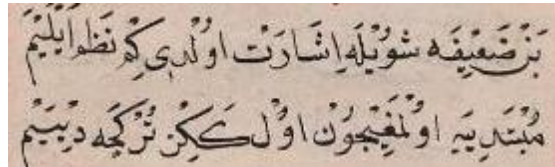 بَنْ ضَعِيفَه شُويْلَه اِشَارَتْ اوُلْدِى كِمْ نَظْم اَيْلَيَمْ
مُبْتَدِيَه اوُلْمَغِيچُونْ اوُلْ تُرْكجَه دِييَيَمْ